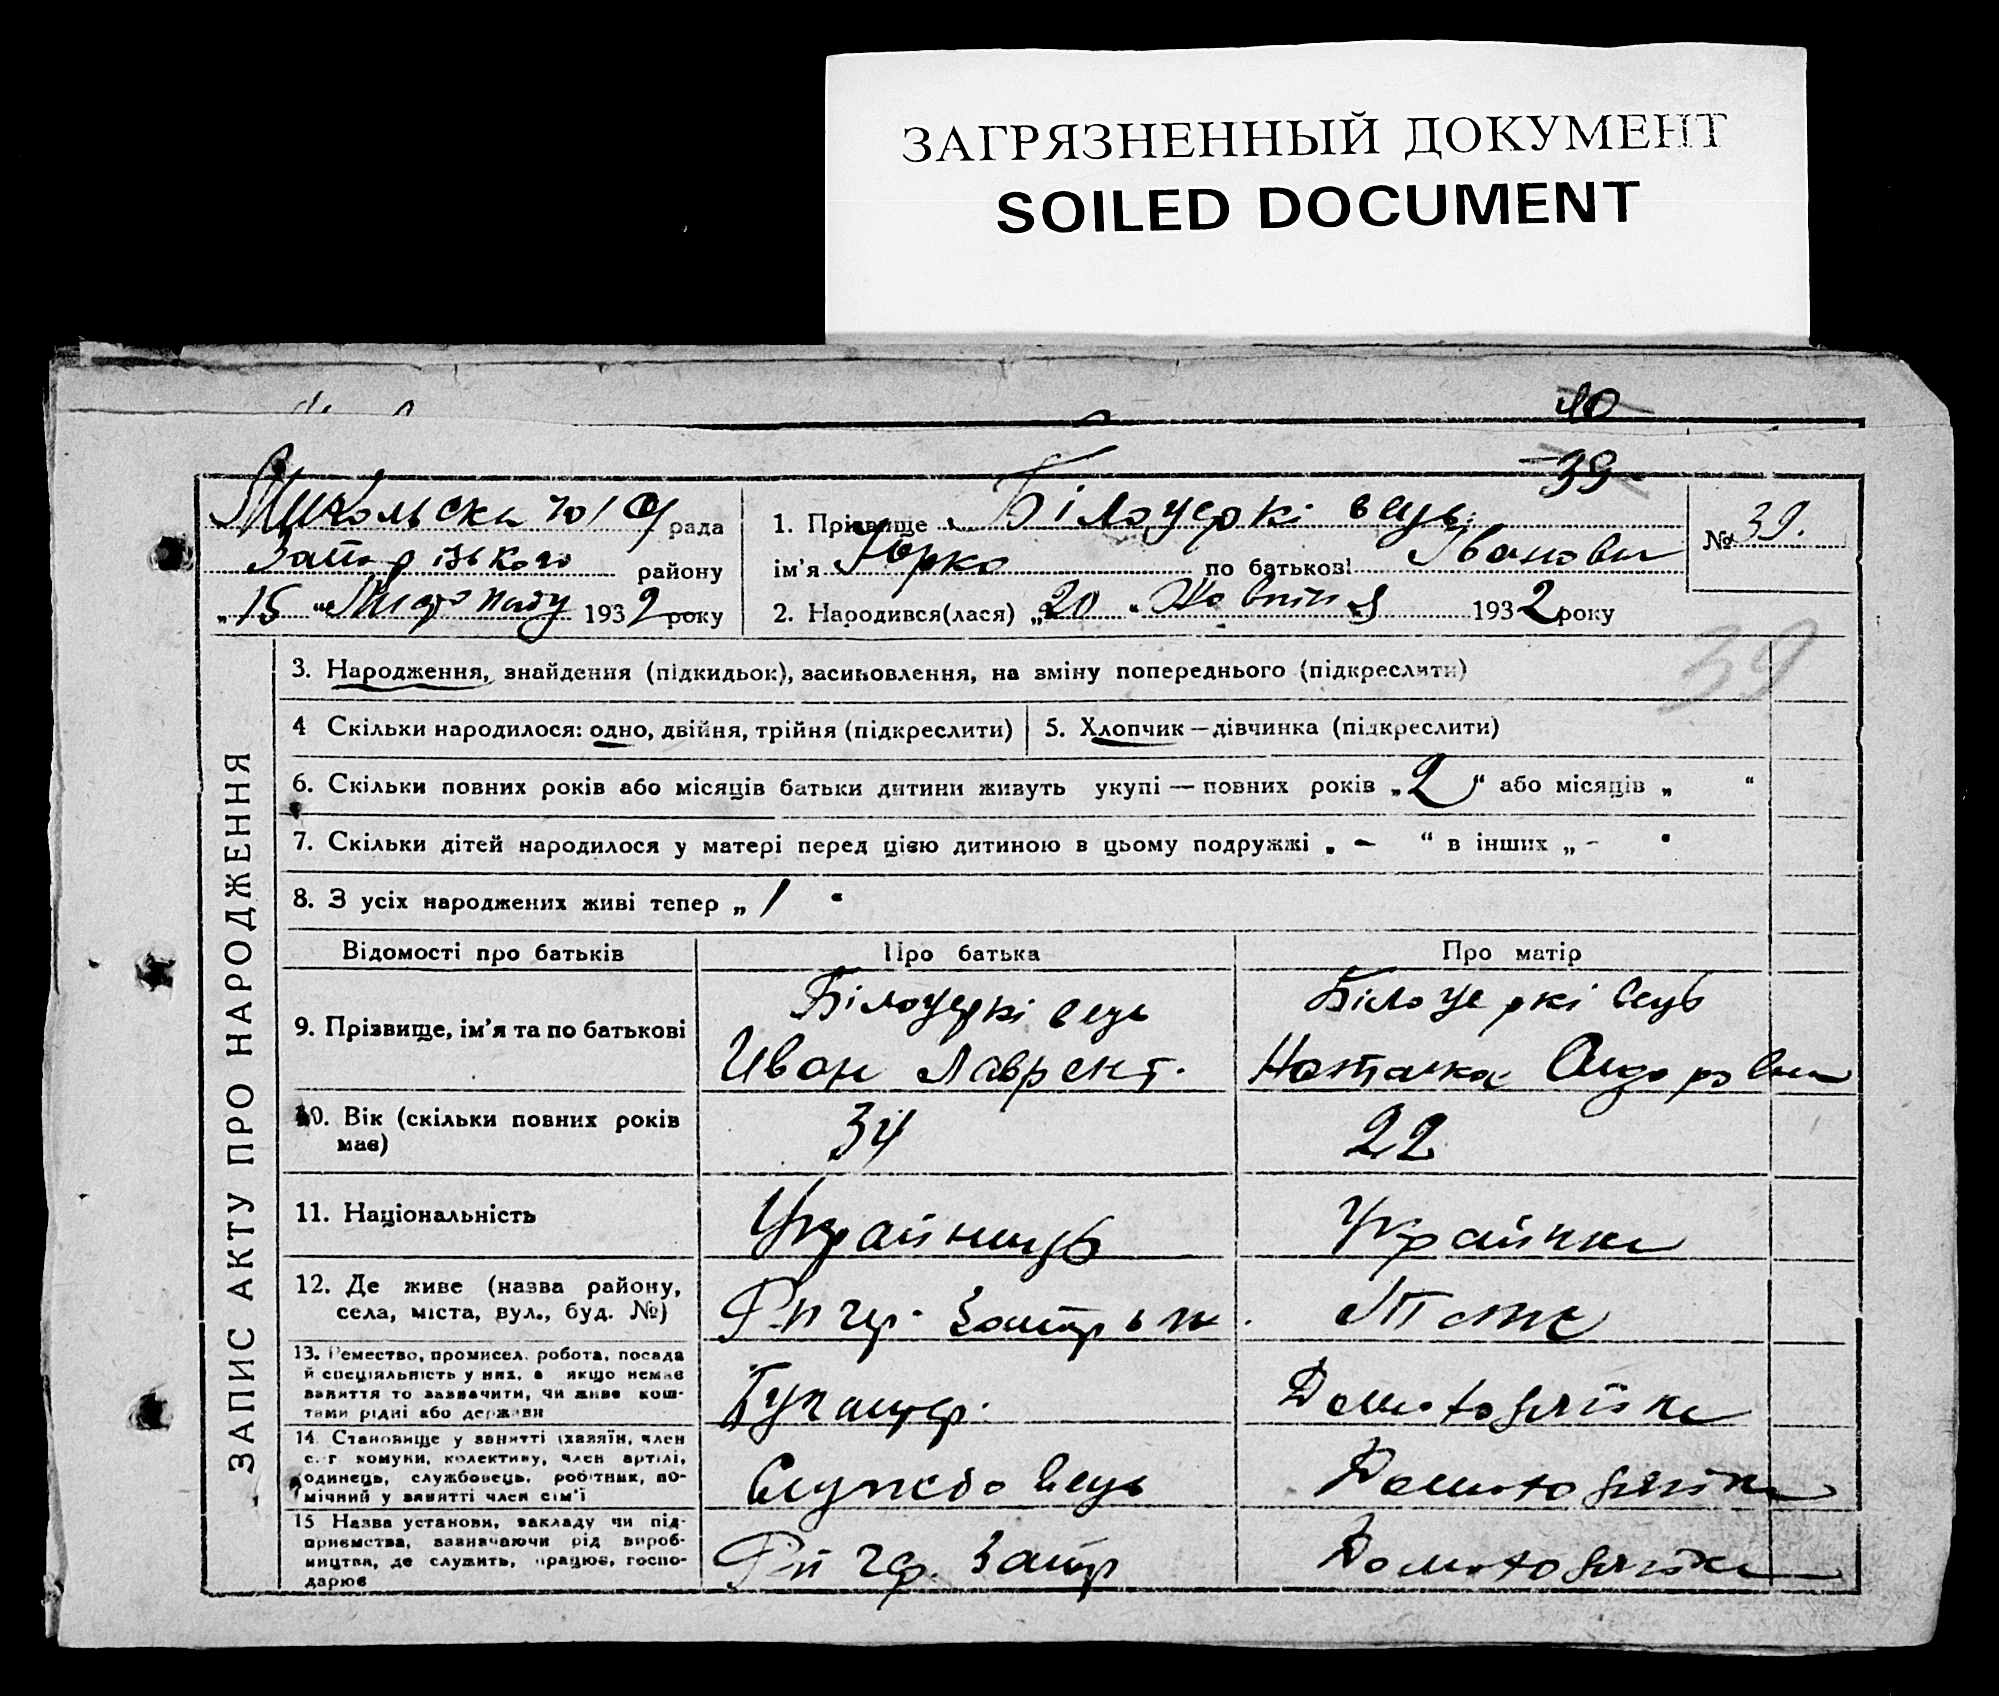 ЗАГРЯЗНЕННЫЙ ДОКУМЕНТ
SOILED DOCUMENT
40
39
рада
району
„15" Листопаду 1932 року
1. Прізвище Білоцерківець
ім'я Юрко по батькові Іванович
2. Народився(лася) „20" Жовтня 1932 року
№ 39.
39
ЗАПИС АКТУ ПРО НАРОДЖЕННЯ
3. Народження, знайдення (підкидьок), засиновлення, на зміну попереднього (підкреслити)
4 Скільки народилося: одно, двійня, трійня (підкреслити)
5. Хлопчик — дівчинка (підкреслити)
6. Скільки повних років або місяців батьки дитини живуть укупі — повних років „2" або місяців „ "
7. Скільки дітей народилося у матері перед цією дитиною в цьому подружжі „ – " в інших „ – "
8. З усіх народжених живі тепер „1"
Відомості про батьків Про батька Про матір
9. Прізвище, ім'я та по батькові
Білоцерківець
Иван Лаврент.
Білоцерківець
Наталка
10. Вік (скільки повних років
має)
34
22
11. Національність
Українець
Українка
12. Де живе (назва району,
села, міста, вул., буд. №)
13. Ремество, промисел, робота, посада
й спеціяльність у них, а якщо немає
заняття то зазначити, чи живе кош-
тами рідні або держави
Бугалтер.
14. Становище у занятті (хазяїн, член
с.-г комуни, колективу, член артілі,
одинець, службовець, робітник, по-
мічний у занятті член сім'ї
Службовець
15 Назва установи, закладу чи під-
приємства, зазначаючи рід вироб-
ництва, де служить, працює, госпо-
дарює